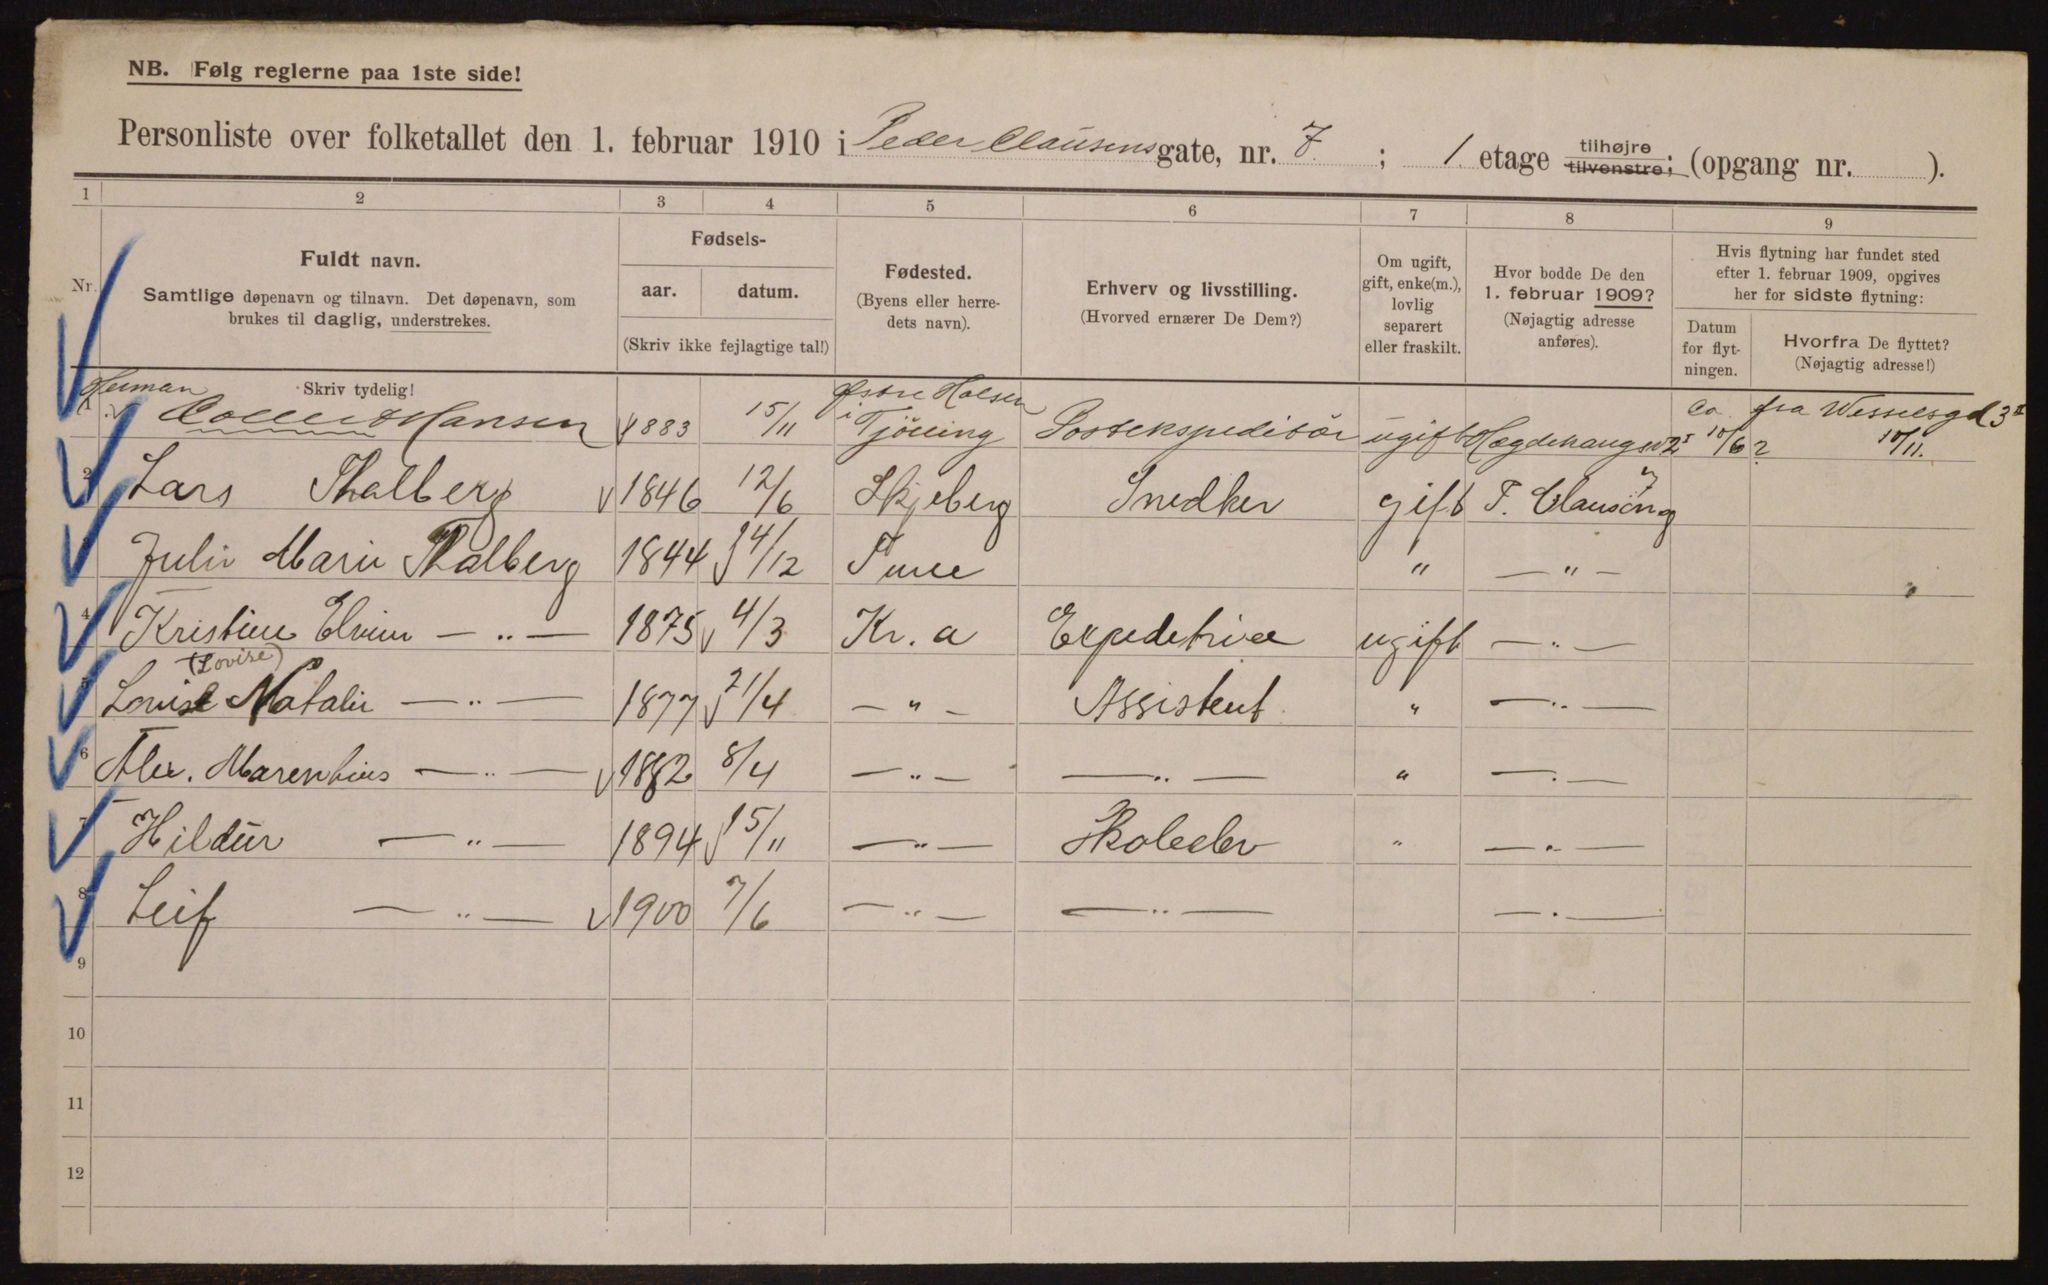 NB. Følg reglerne paa 1ste side!
Personliste over folketallet den 1. februar 1910 i Peder Clausens gate, nr. 7 ; 1 etage tilhøjre tilvenstre; (opgang nr. ).
1 2 3 4 5 6 7 8 9
Nr.
Fuldt navn.
Samtlige døpenavn og tilnavn. Det døpenavn, som
brukes til daglig, understrekes.
Skriv tydelig!
Fødsels-
aar. datum.
(Skriv ikke fejlagtige tal!)
Fødested.
(Byens eller herre-
dets navn).
Erhverv og livsstilling.
(Hvorved ernærer De Dem?)
Om ugift,
gift, enke(m.),
lovlig
separert
eller fraskilt.
Hvor bodde De den
1. februar 1909?
(Nøjagtig adresse
anføres).
Hvis flytning har fundet sted
efter 1. februar 1909, opgives
her for sidste flytning:
Datum
for flyt-
ningen.
Hvorfra De flyttet?
(Nøjagtig adresse!)
Herman Østre Halsen
1 Collett Hansen 1883 15/11 i Tjölling Postekspeditör ugift Hægdehaugsv 2 I ca. 10/6 ? fra Wesselsgd 3 II 10/11.
2 Lars Thalberg 1846 12/6 Skjeberg Snedker gift P. Clausensg 7
3 Julie Marie Thalberg 1844 14/12 Tune " — " —
4 Kristine Elvine — " — 1875 4/3 Kr. a Expeditrice ugift — " —
(Lovise)
5 Louise Natalie — " — 1877 21/4 — " — Assistent " — " —
6 Alex. Marenhius — " — 1882 8/4 — " — — " — " — " —
7 Hildur — " — 1894 15/11 — " — Skoleelev " — " —
8 Leif — " — 1900 7/6 — " — — " — — " —
9
10
11
12